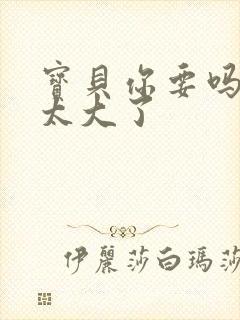 寶貝你要吗
太大了
伊麗莎白瑪莎